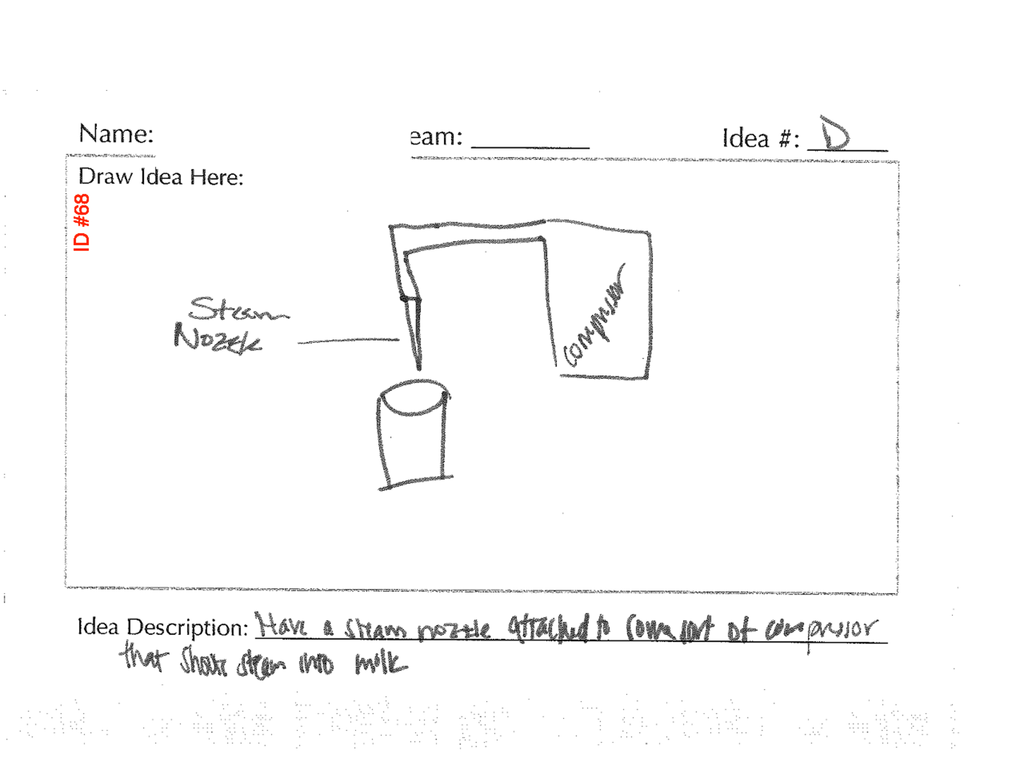 Name:
eam:
Idea #: D
Draw Idea Here:
ID #68
Steam
Nozzle
compressor
Idea Description: Have a steam nozzle attached to some sort of compressor
that steam into milk